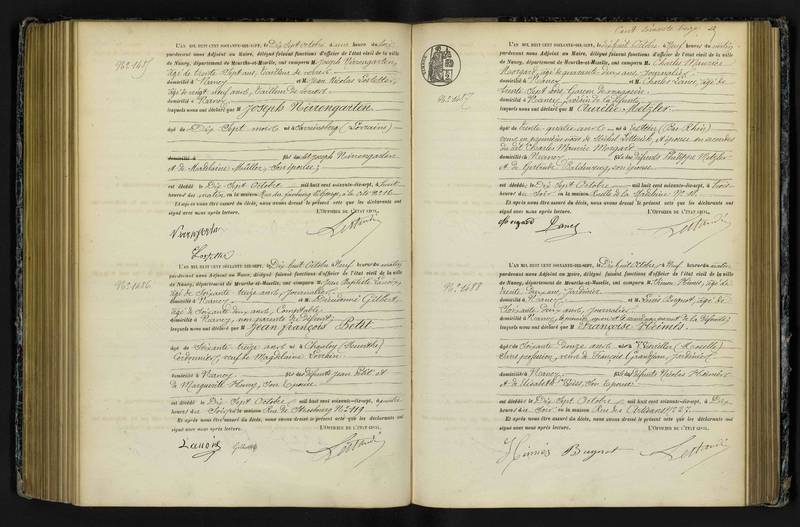 No. 1485
L'AN MIL HUIT CENT SOIXANTE-DIX-SEPT, le Dix Sept octobre à une heure du Soir
pardevant nous Adjoint au Maire, délégué faisant fonctions d'officier de l'état civil de la ville
de Nancy, département de Meurthe-et-Moselle, ont comparu M. Joseph Nirrengarten,
âgé de trente Sept ans, tailleur de
domicilié à Nancy et M. Jean Nicolas
âgé de vingt neuf ans, tailleur de
domicilié à Nancy
lesquels nous ont déclaré que M Joseph Nirrengarten
âgé de Dix Sept mois né à Sarrebourg (Lorraine)
domicilié à fils de Joseph Nirrengarten
et de Madelaine Müller, Son épouse;
est décédé le Dix Sept Octobre mil huit cent soixante-dix-sept, à huit
heures du matin, en la maison rue du faubourg St George,
Et après nous être assuré du décès, nous avons dressé le présent acte que les déclarants ont
signé avec nous après lecture. L'OFFICIER DE L'ÉTAT CIVIL,
No. 1486
L'AN MIL HUIT CENT SOIXANTE-DIX-SEPT, le Dix huit Octobre à Neuf heures du matin
pardevant nous Adjoint au Maire, délégué faisant fonctions d'officier de l'état civil de la ville
de Nancy, département de Meurthe-et-Moselle, ont comparu M. Jean Baptiste
âgé de Soixante treize ans, Journalier
domicilié à Nancy et M. Dieudonné Gilbert,
âgé de Soixante Deux ans, Comptable
domicilié à Nancy, non parents du Défunt;
lesquels nous ont déclaré que M Jean François Petit
âgé de Soixante treize ans né à (Meurthe)
Cordonnier, veuf de Magdelaine
domicilié à Nancy fils des Défunts Jean Petit et
de Marguerite Son épouse
est décédé le Dix Sept Octobre mil huit cent soixante-dix-sept, à quatre
heures du Soir en la maison Rue de Strasbourg No. 119
Et après nous être assuré du décès, nous avons dressé le présent acte que les déclarants ont
signé avec nous après lecture. L'OFFICIER DE L'ÉTAT CIVIL,
No. 1487
L'AN MIL HUIT CENT SOIXANTE-DIX-SEPT, le Dix huit Octobre à Neuf heures du matin
pardevant nous Adjoint au Maire, délégué faisant fonctions d'officier de l'état civil de la ville
de Nancy, département de Meurthe-et-Moselle, ont comparu M. Charles Maurice
Morgard, âgé de quarante Cinq ans, Journalier
domicilié à Nancy et M. Charles Lance, âgé de
trente Sept ans, Garçon de magasin,
domicilié à Nancy, de la Défunte;
lesquels nous ont déclaré que M Aurélie Metzler
âgée de trente quatre ans née à (Bas Rhin)
veuve en premières noces de Michel et épouse en secondes
du dit Charles Maurice Morgard
domiciliée à Nancy fille des Défunts Philippe Metzler
et de Gertrude Son épouse
est décédée le Dix Sept Octobre mil huit cent soixante-dix-sept, à
heures du Soir en la maison No. 18
Et après nous être assuré du décès, nous avons dressé le présent acte que les déclarants ont
signé avec nous après lecture. L'OFFICIER DE L'ÉTAT CIVIL,
No. 1488
L'AN MIL HUIT CENT SOIXANTE-DIX-SEPT, le Dix huit Octobre à Neuf heures du matin
pardevant nous Adjoint au Maire, délégué faisant fonctions d'officier de l'état civil de la ville
de Nancy, département de Meurthe-et-Moselle, ont comparu M. âgé de
trente Deux ans, Jardinier
domicilié à Nancy et M. Louis Bugnot, âgé de
Soixante Deux ans, Journalier
domicilié à Nancy, de la Défunte;
lesquels nous ont déclaré que M Françoise Heimès
âgée de Soixante Douze ans née à (Moselle)
Sans profession, veuve de François Grandjean, Jardinier
domiciliée à Nancy fille des Défunts Nicolas Heimès
et de Elisabeth Son épouse
est décédée le Dix Sept Octobre mil huit cent soixante-dix-sept, à Dix
heures du Soir en la maison Rue des Artisans No. 27.
Et après nous être assuré du décès, nous avons dressé le présent acte que les déclarants ont
signé avec nous après lecture. L'OFFICIER DE L'ÉTAT CIVIL,
Bugnot